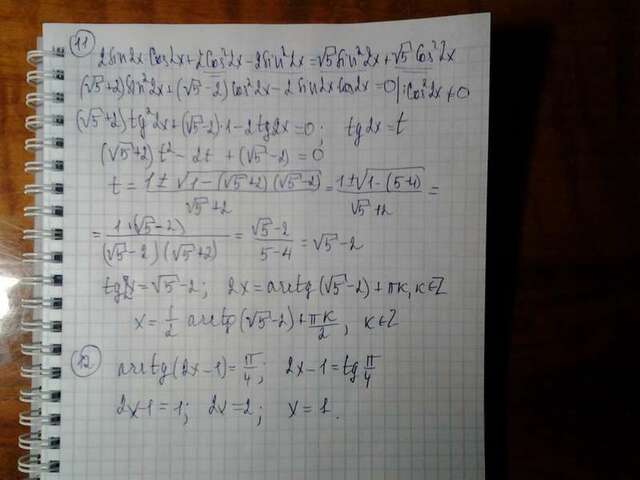 11) 2sin2x·cos2x+2cos²2x-2sin²2x=√5sin²2x+√5cos²2x
(√5+2)sin²2x+(√5-2)cos²2x-2sin2xcos2x=0 |:cos²2x≠0
(√5+2)tg²2x+(√5-2)·1-2tg2x=0; tg2x=t
(√5+2)t²-2t+(√5-2)=0
t = (1±√(1-(√5+2)(√5-2)))/(√5+2) = (1±√(1-(5-4)))/(√5+2) =
= (1·(√5-2))/((√5-2)(√5+2)) = (√5-2)/(5-4) = √5-2
tg2x=√5-2; 2x=arctg(√5-2)+πк, к∈Z
x=1/2 arctg(√5-2)+πк/2, к∈Z
12) arctg(2x-1)=π/4; 2x-1=tg π/4
2x-1=1; 2x=2; x=1.